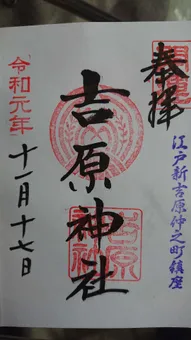 奉拝
江戸新吉原仲之町鎮座
吉原神社
令和元年
十一月十七日